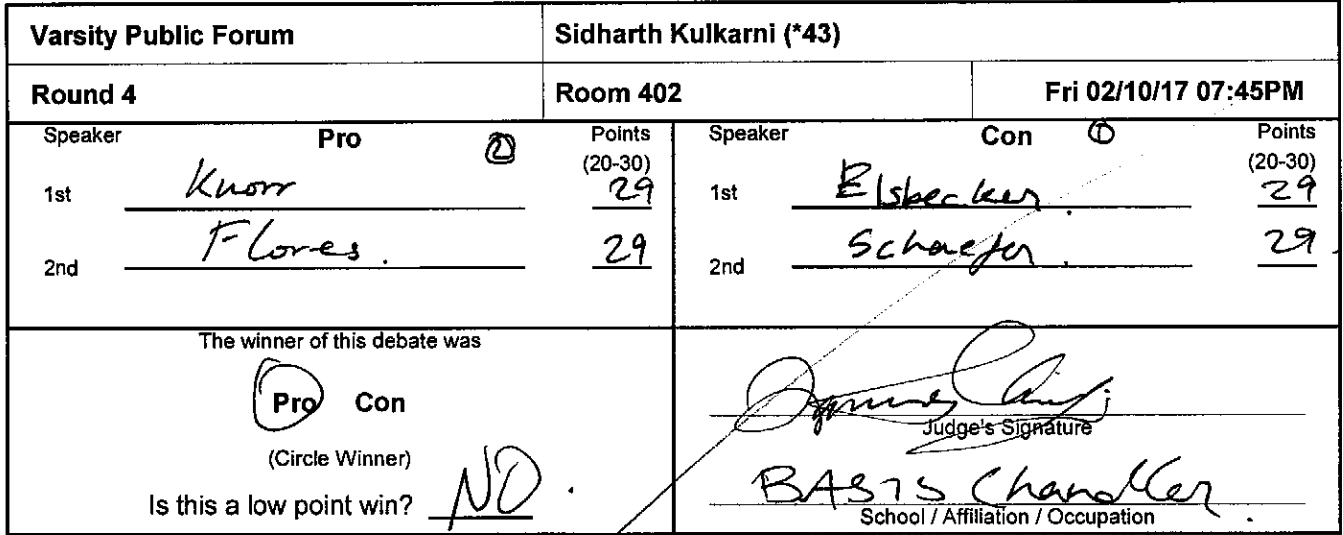 Varsity Public Forum Sidharth Kulkarni (*43)
Round 4 Room 402 Fri 02/10/17 07:45PM
Speaker Pro ② Points
(20-30)
1st Knorr 29
2nd Flores. 29
Speaker Con ① Points
(20-30)
1st Elsbecker. 29
2nd Schaefer. 29
The winner of this debate was
Pro Con
(Circle Winner)
Is this a low point win? NO.
Judge's Signature
BASIS Chandler.
School / Affiliation / Occupation